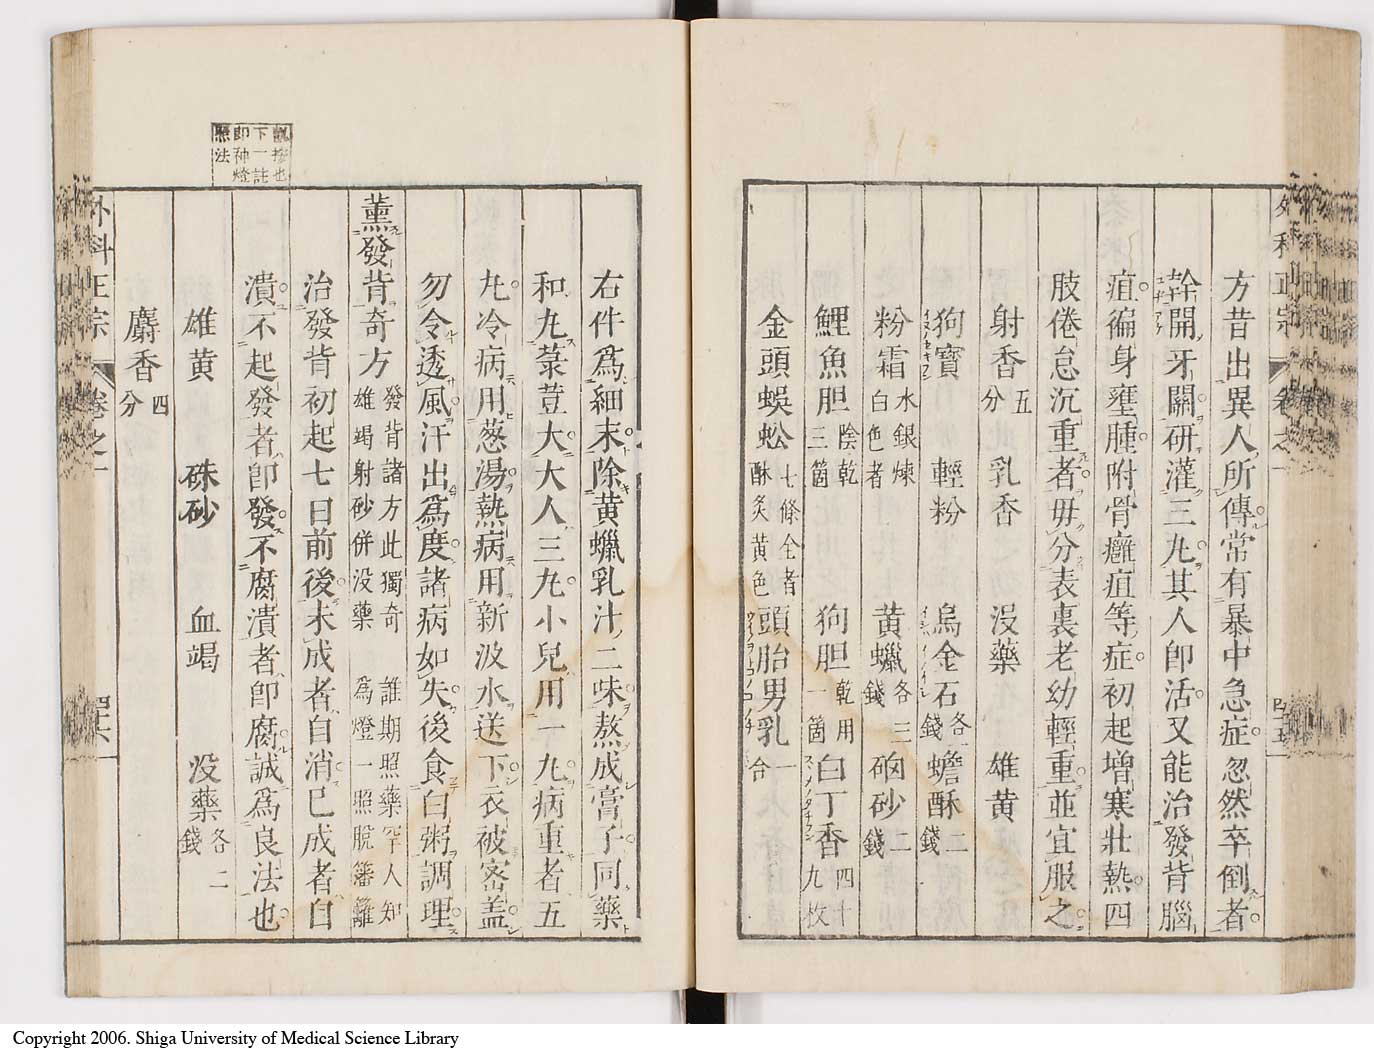 方昔出異人所傳常有暴中急症忽然卒倒者
幹開牙關研灌三九其人卽活又能治發背腦
疽徧身壅腫附骨癰疽等症初起增寒壯熱四
肢倦怠沉重者毋分表裏老幼輕重並宜服之
射香五分 乳香 沒藥 雄黄
狗寳 輕粉 烏金石各一錢 蟾酥二錢
粉霜水銀煉白色者 黄蠟各三錢 硇砂二錢
鯉魚胆陰乾三箇 狗胆乾用一箇 白丁香四十九枚
金頭蜈蚣七條全者酥炙黄色 頭胎男乳一合
外科正宗 卷之一
右件爲細末除黄蠟乳汁二味熬成膏子同藥
和丸菉荳大大人三丸小兒用一丸病重者五
丸冷病用葱湯熱病用新汲水送下衣被密盖
勿令透風汗出爲度諸病如失後食白粥調理
薫發背奇方發背諸方此獨奇 誰期照藥罕人知
雄竭射砂併没藥 爲燈一照脫籓籬
治發背初起七日前後未成者自消已成者自
潰不起發者卽發不腐潰者卽腐誠爲良法也
雄黄 硃砂 血竭 没藥各二錢
麝香四分
外科正宗 卷之一 四十六
下一註
卽神燈
照法
Copyright 2006. Shiga University of Medical Science Library